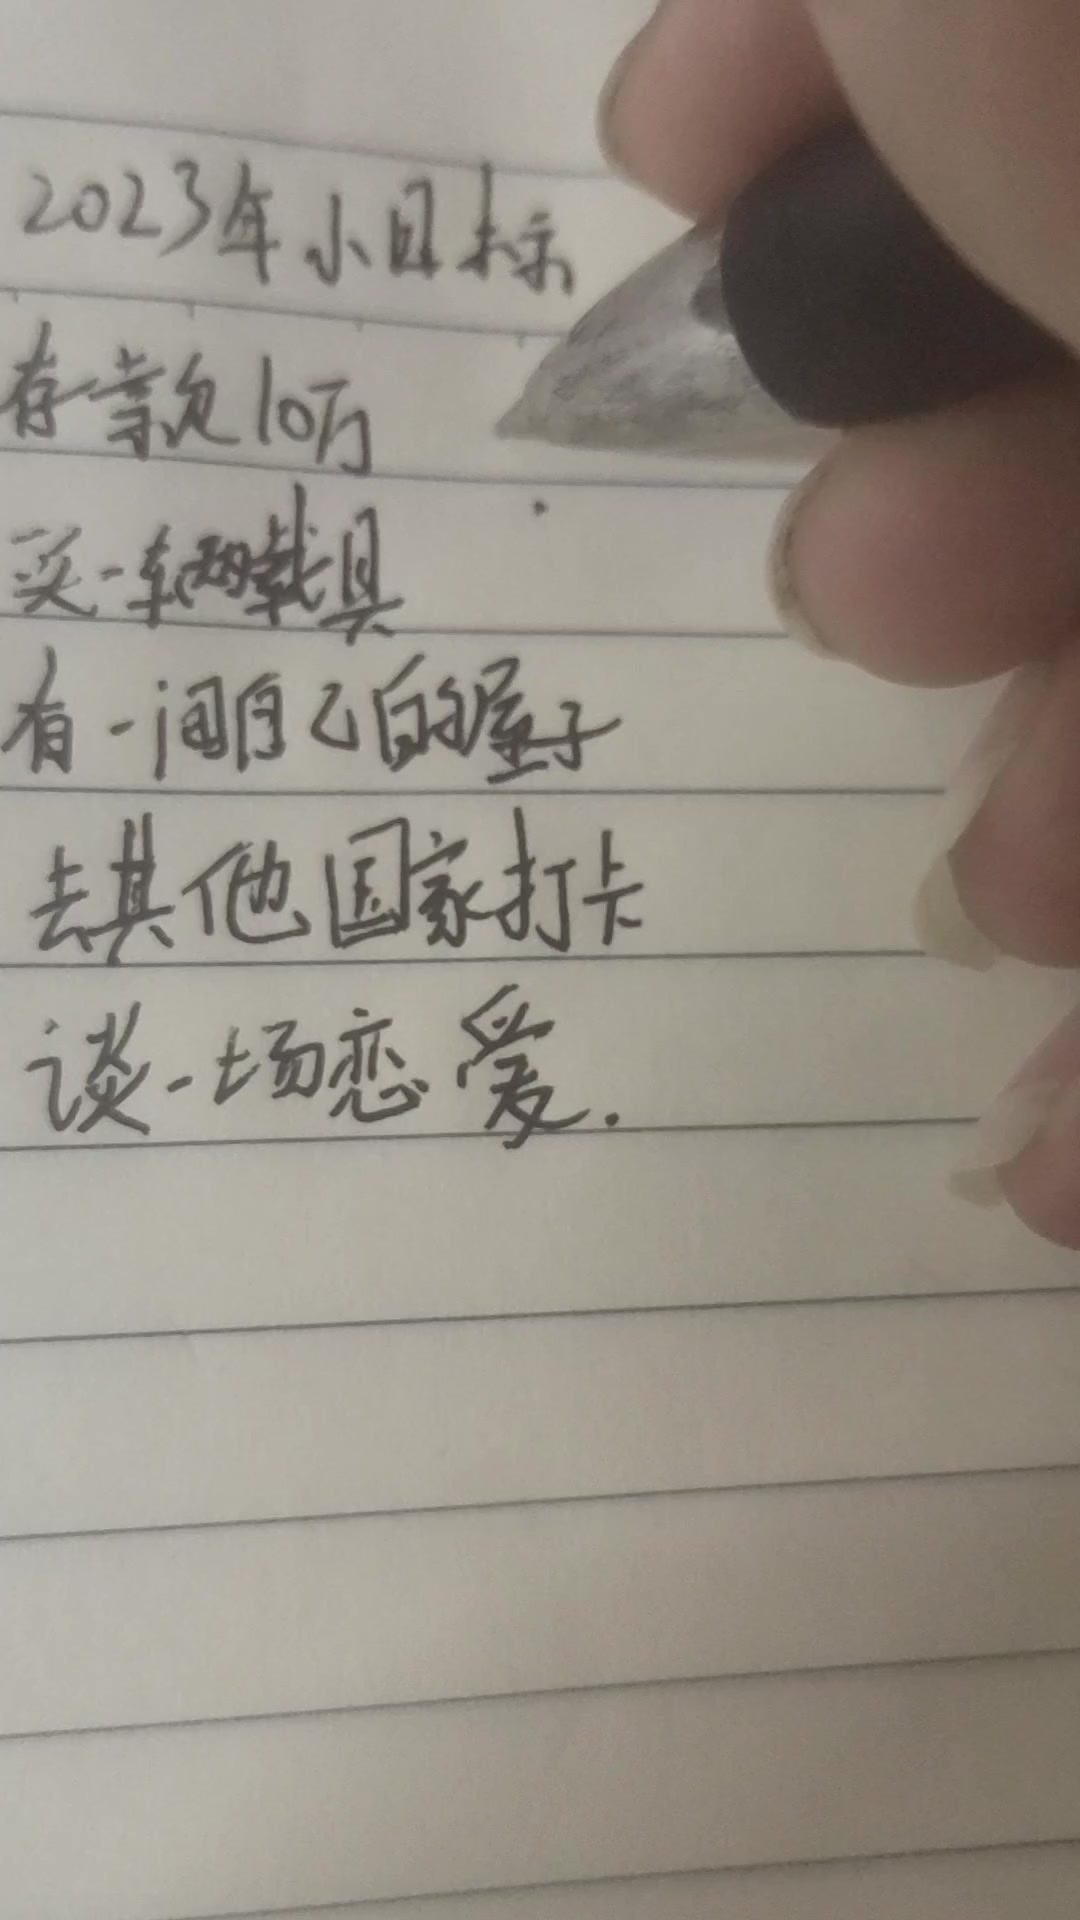 2023年小目标
存款10万
买一辆载具
有一间自己的屋子
去其他国家打卡
谈一场恋爱.